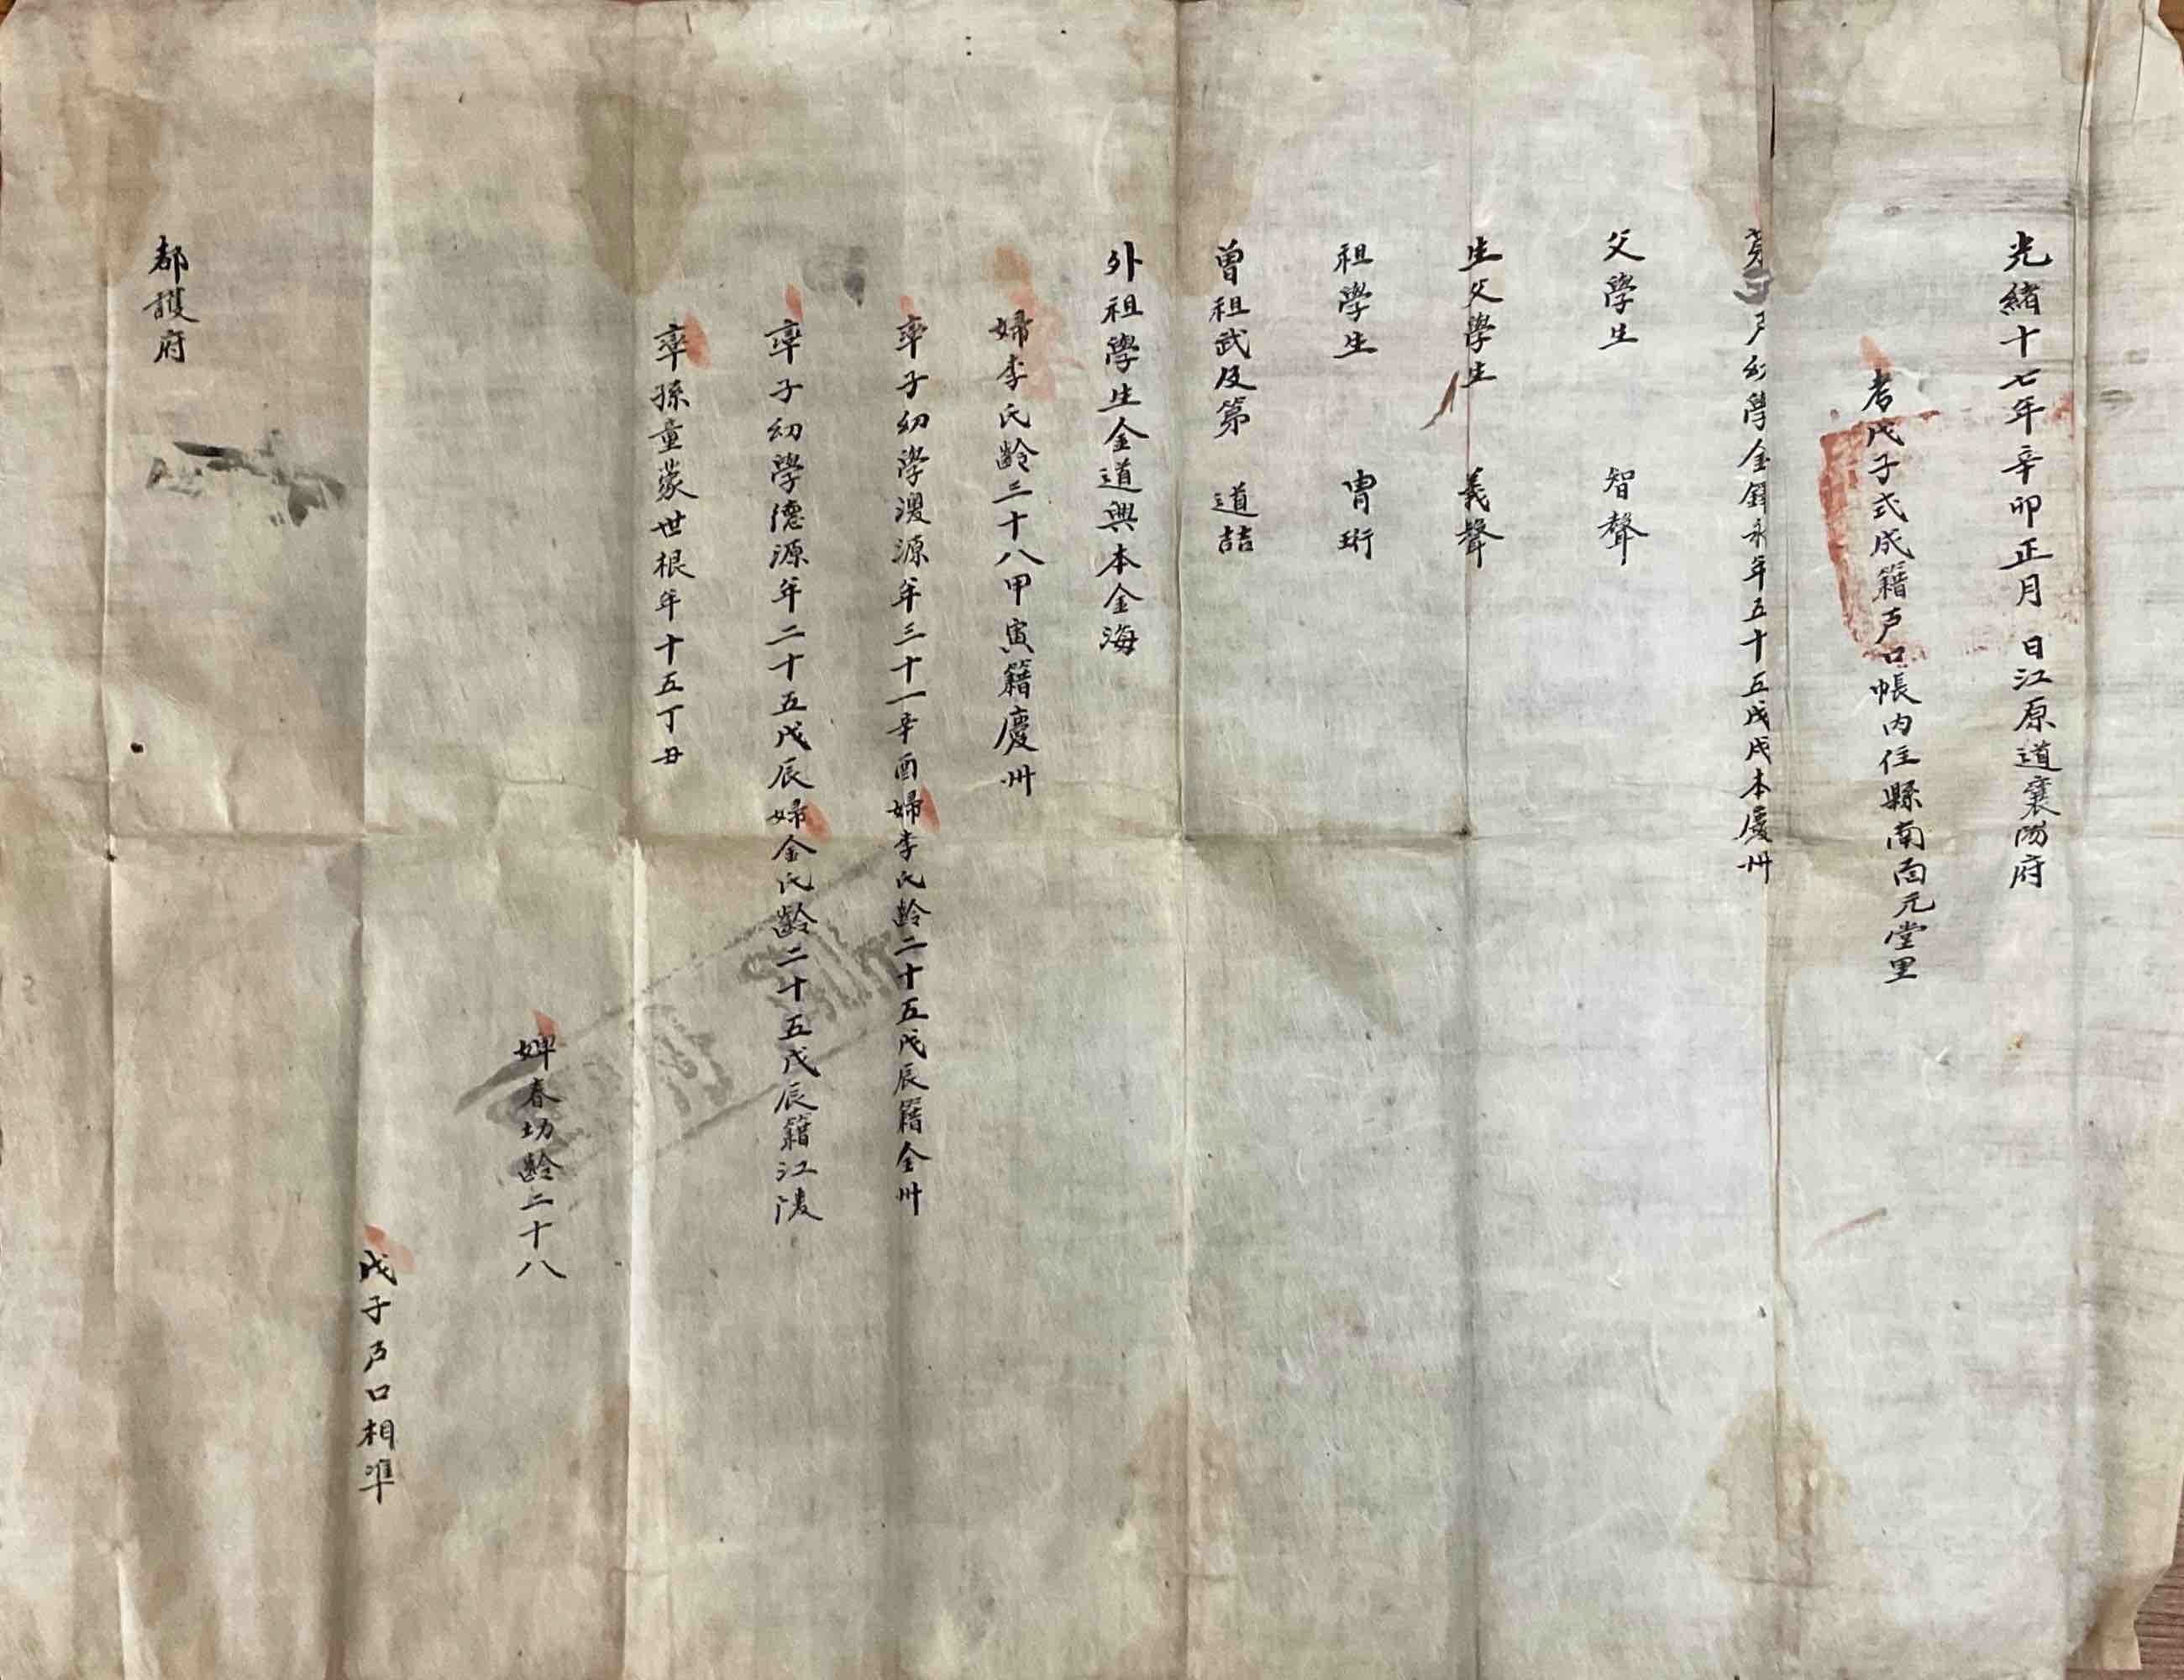 光緖十七年辛卯正月 日江原道襄陽府
考戊子式成籍戶口帳內住縣南面元堂里
第 戶幼學金鐸永年五十五戊戌本慶州
父學生 智聲
生父學生 義聲
祖學生 胄珩
曾祖武及第 道喆
外祖學生金道興本金海
婦李氏齡三十八甲寅籍慶州
率子幼學漫源年三十一辛酉婦李氏齡二十五戊辰籍全州
率子幼學德源年二十五戊辰婦金氏齡二十五戊辰籍江陵
率孫童蒙世根年十五丁丑
婢春切齡二十八
戊子戶口相準
都護府